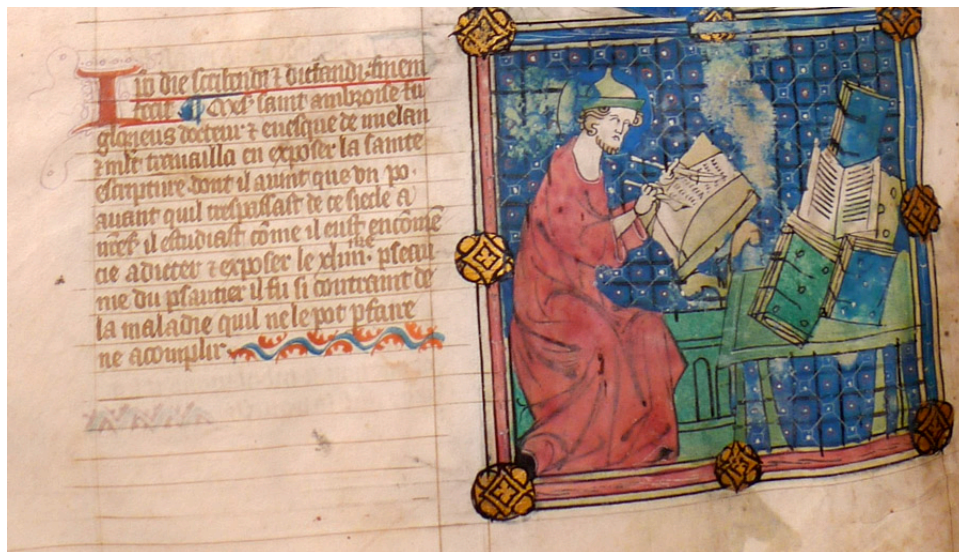 In die scribendi ⁊ dictandi. finem
fecit ¶ Mes saint ambroise fu
glorieus docteur ⁊ euesque de melan
⁊ mlt trauailla en exposer la sainte
escripture dont il auint que vn po.
auant quil trespassast de ce siecle a
il estudiast cõme il eust encõmẽ
cie a dicter ⁊ exposer le xliii. pseau
me du psautier il fu si contraint de
la maladie quil ne le pot pfaire
ne acomplir.